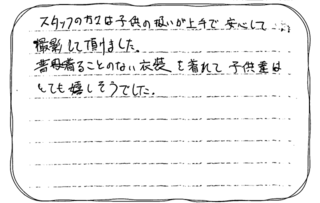 スタッフの方々は子供の扱いが上手で安心して
撮影して頂けました。
普段着ることのない衣装を着れて子供達は
とても嬉しそうでした。